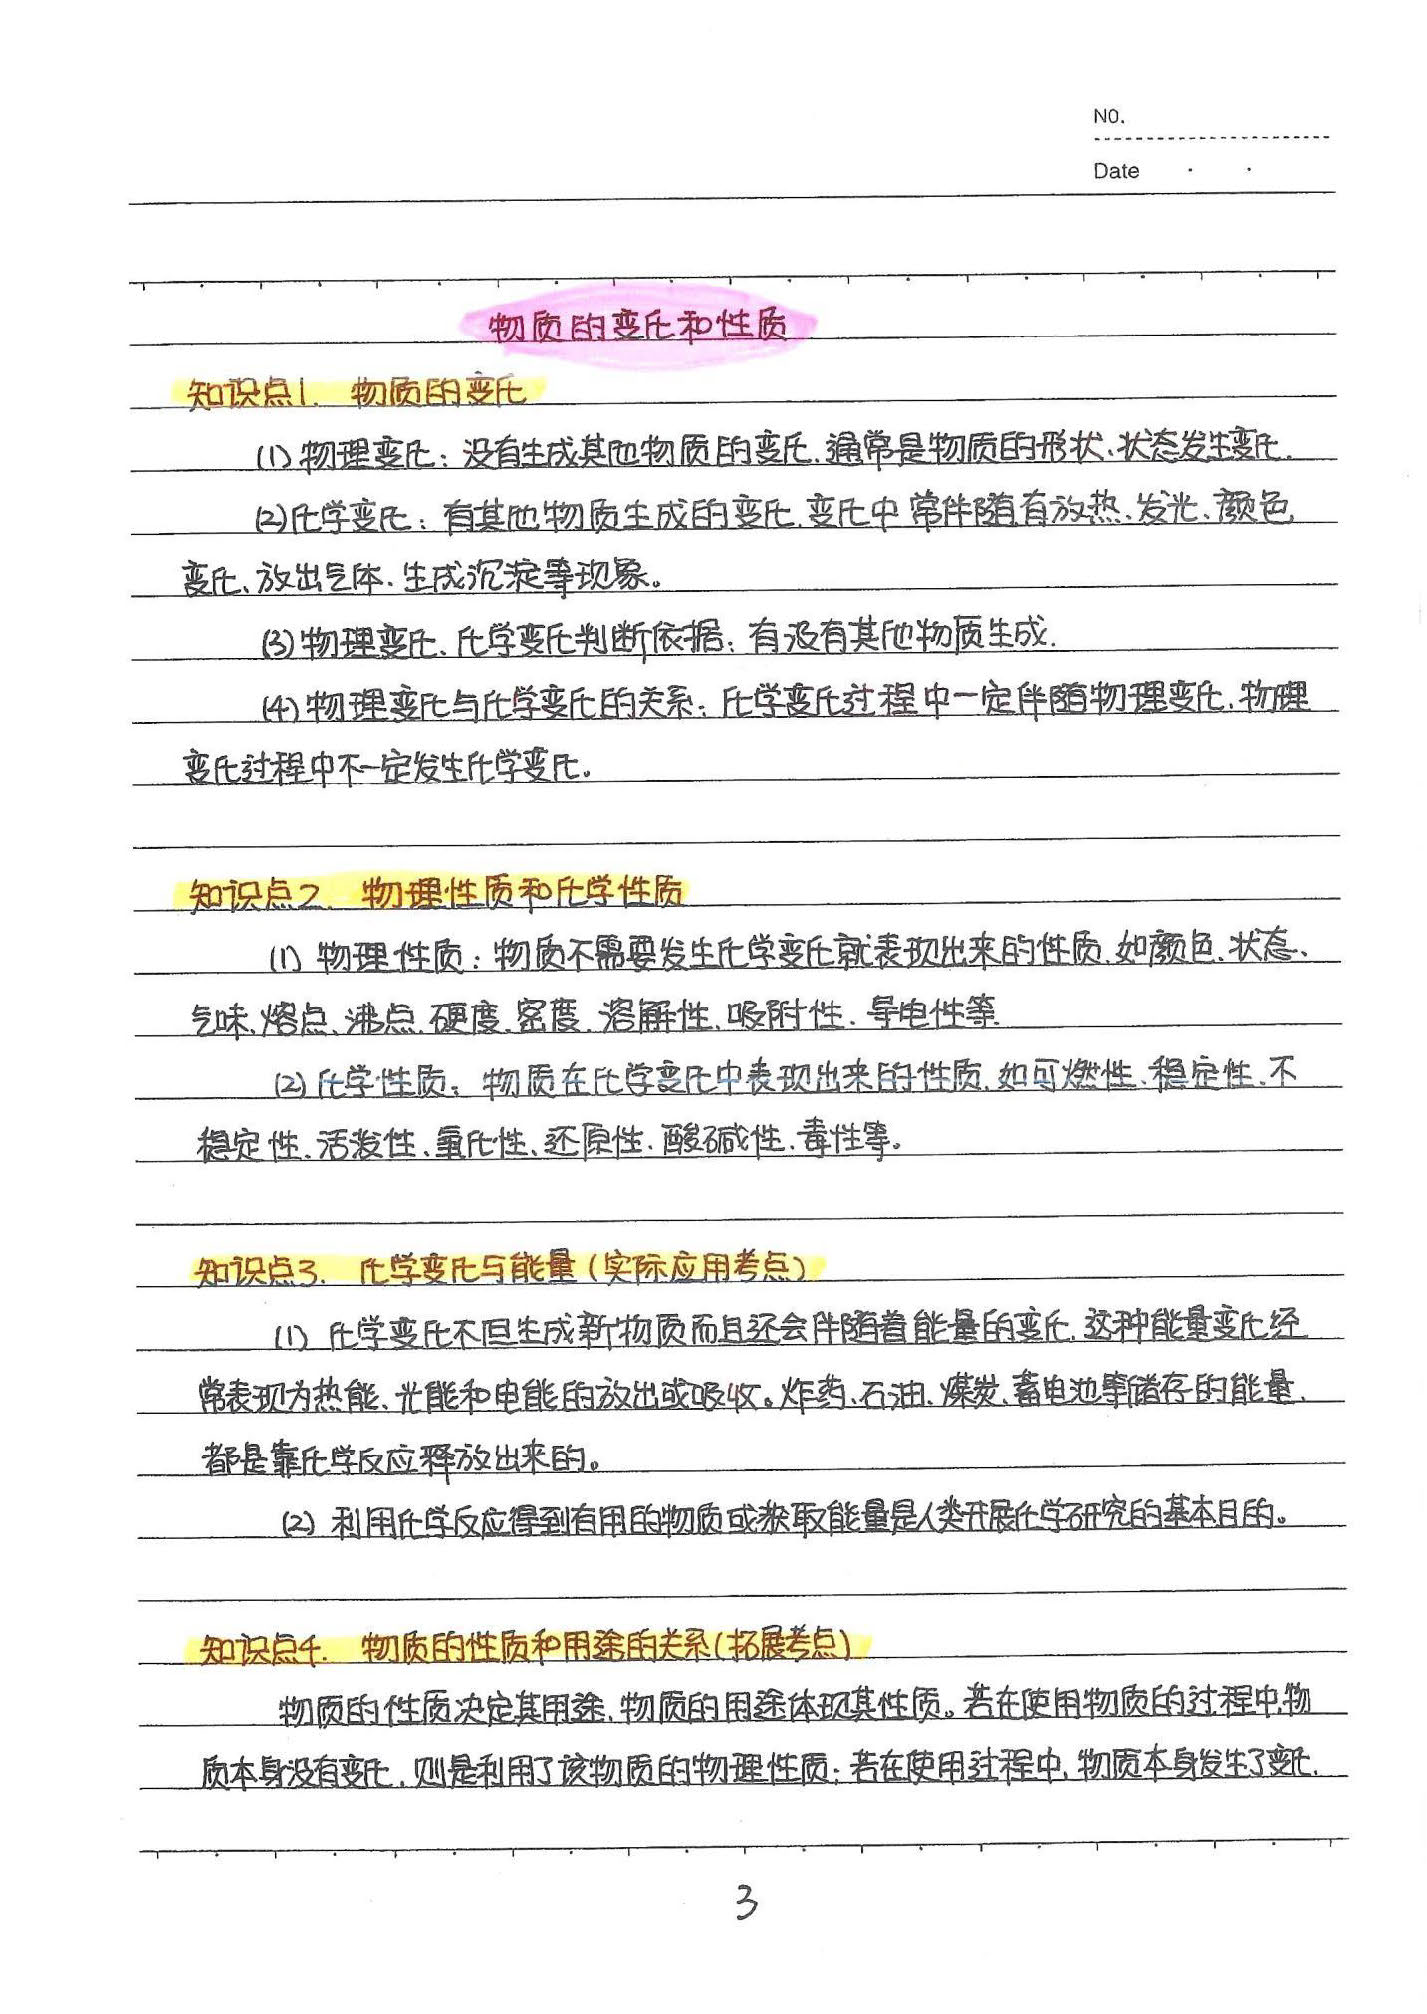 NO.
Date
物质的变化和性质
知识点1. 物质的变化
(1)物理变化:没有生成其他物质的变化,通常是物质的形状、状态发生变化.
(2)化学变化:有其他物质生成的变化,变化中常伴随有放热、发光、颜色
变化、放出气体、生成沉淀等现象。
(3)物理变化、化学变化判断依据:有没有其他物质生成.
(4)物理变化与化学变化的关系:化学变化过程中一定伴随物理变化,物理
变化过程中不一定发生化学变化。
知识点2. 物理性质和化学性质
(1) 物理性质:物质不需要发生化学变化就表现出来的性质,如颜色、状态、
气味、熔点、沸点、硬度、密度、溶解性、吸附性、导电性等
(2)化学性质:物质在化学变化中表现出来的性质,如可燃性、稳定性、不
稳定性、活泼性、氧化性、还原性、酸碱性、毒性等。
知识点3. 化学变化与能量(实际应用考点)
(1) 化学变化不但生成新物质而且还会伴随着能量的变化,这种能量变化经
常表现为热能、光能和电能的放出或吸收。炸药、石油、煤炭、蓄电池等储存的能量,
都是靠化学反应释放出来的。
(2) 利用化学反应得到有用的物质或获取能量是人类开展化学研究的基本目的。
知识点4. 物质的性质和用途的关系(拓展考点)
物质的性质决定其用途,物质的用途体现其性质。若在使用物质的过程中,物
质本身没有变化,则是利用了该物质的物理性质;若在使用过程中,物质本身发生了变化,
3